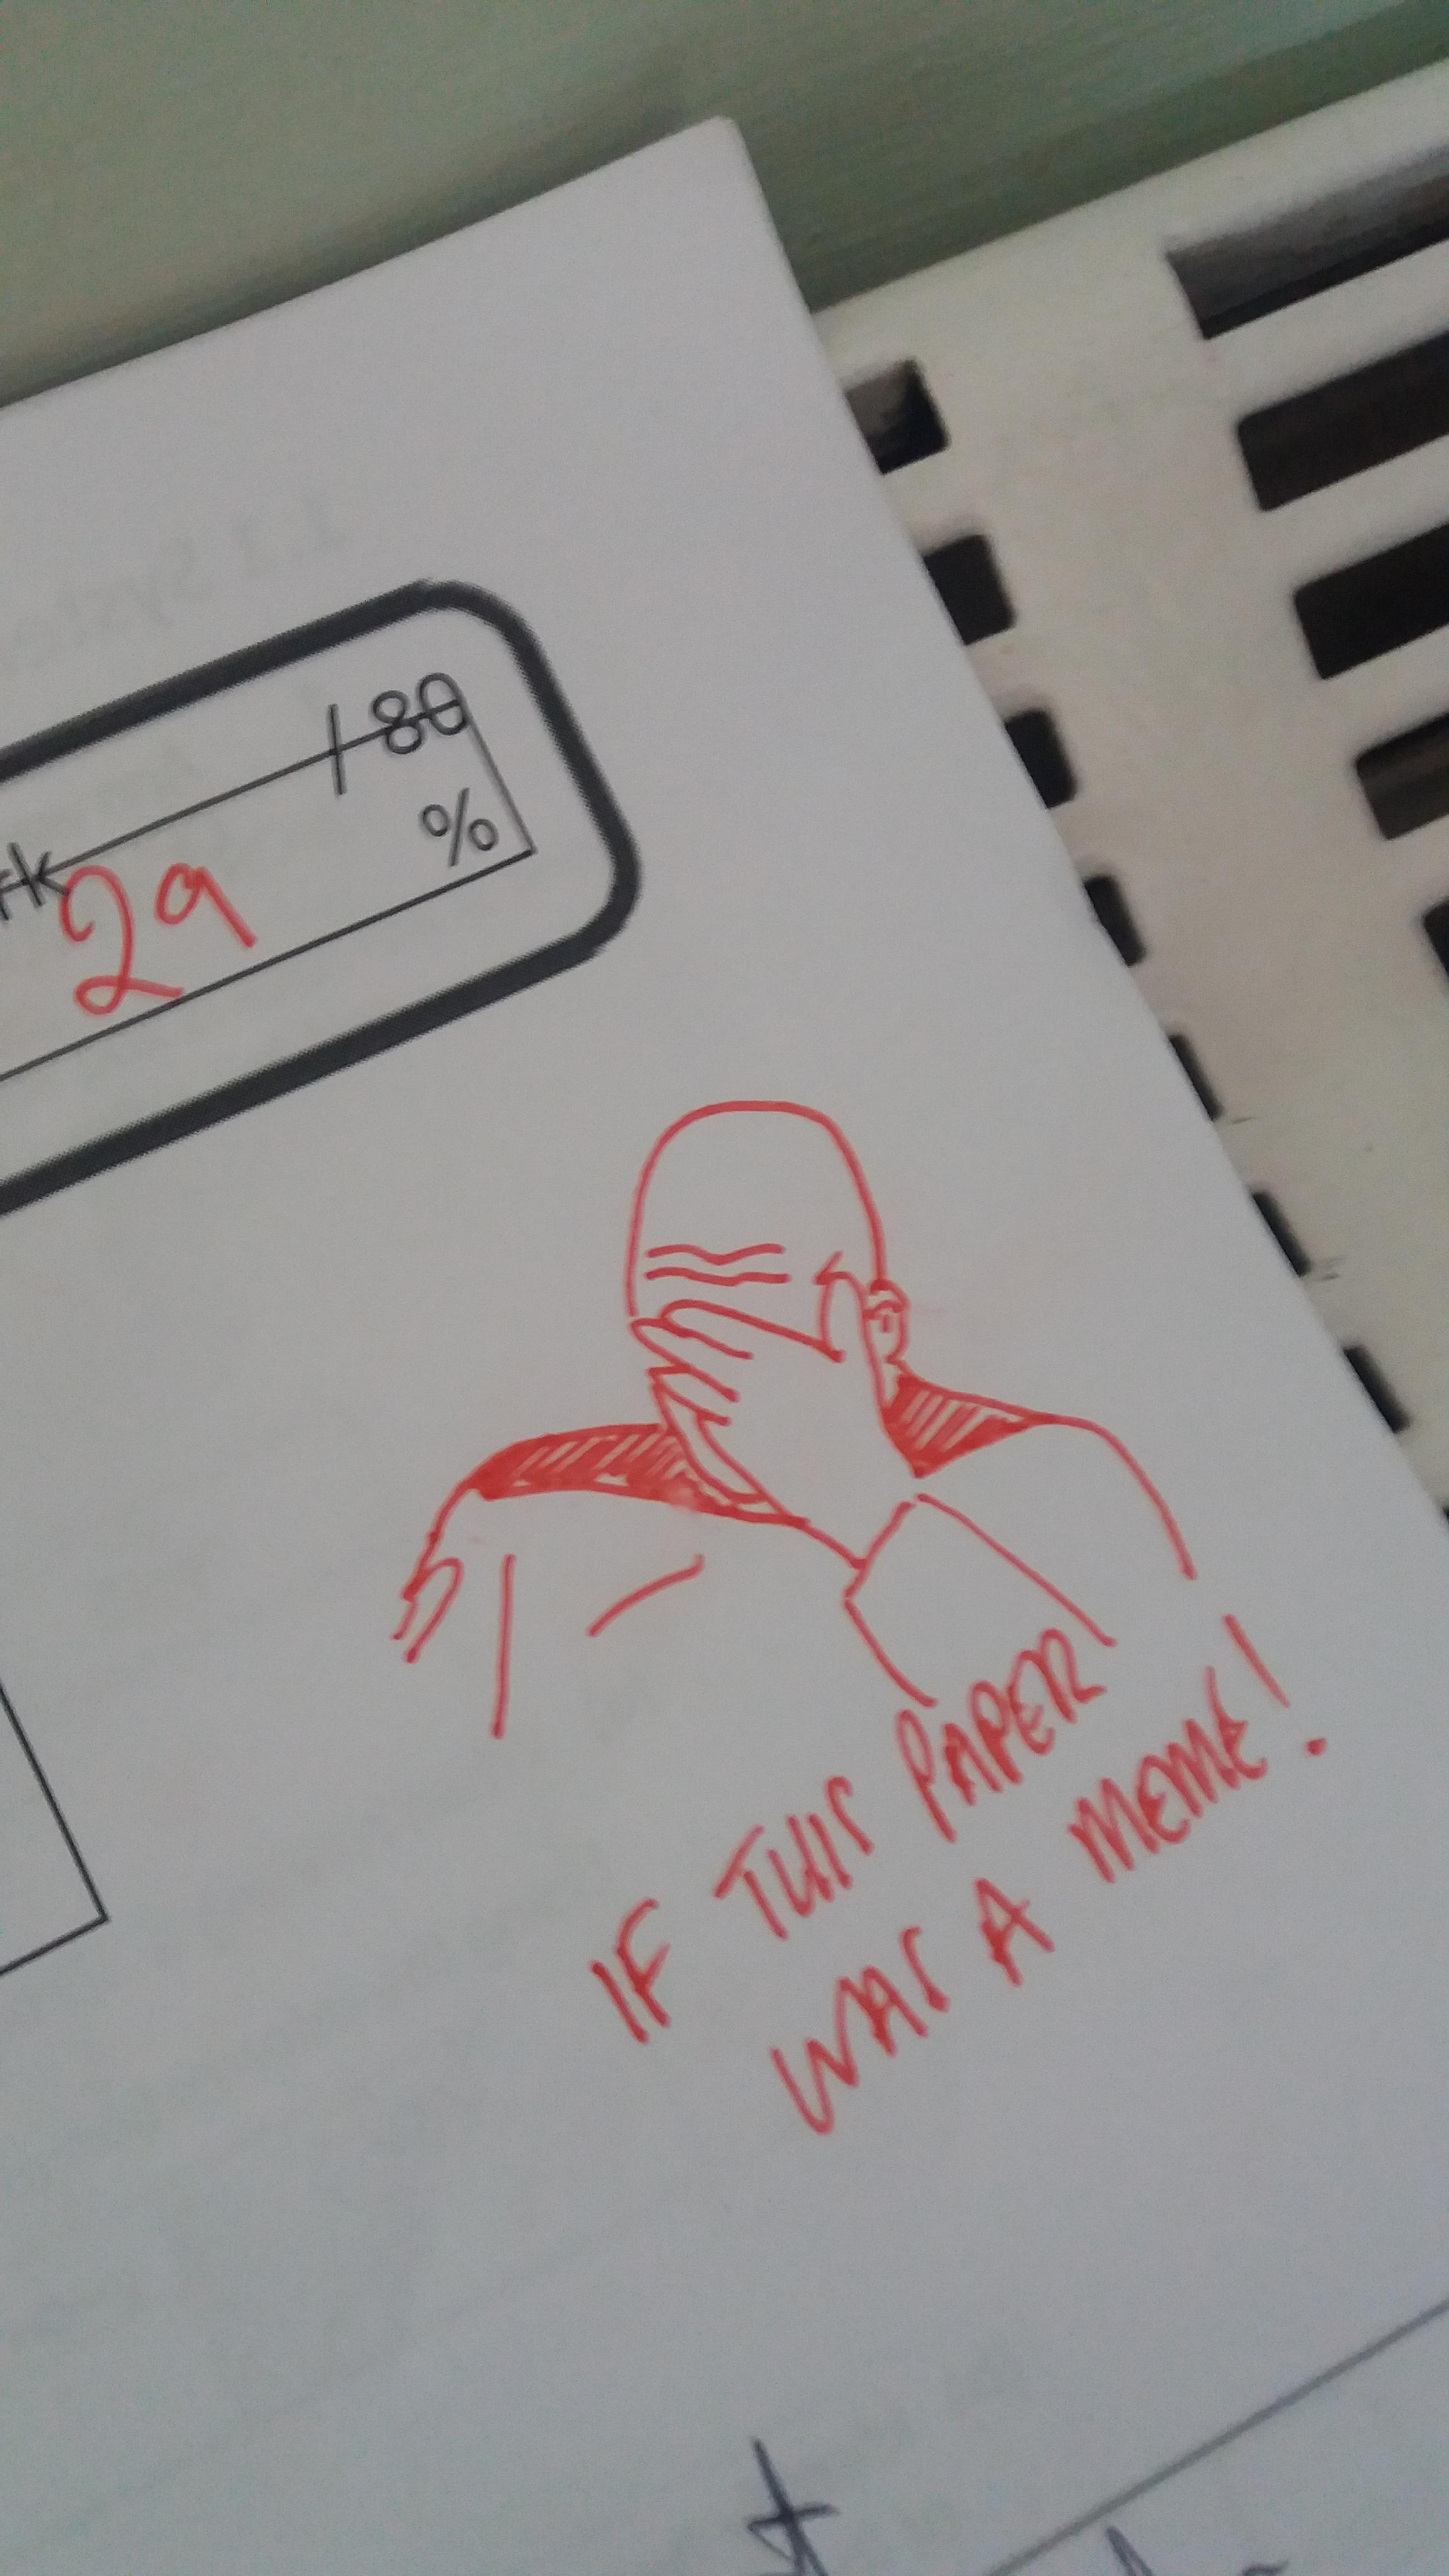 /80
rk 29 %
IF THIS PAPER
WAS A MEME!